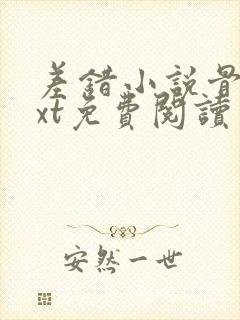 差錯小說最
xt免費閱讀
安然一世